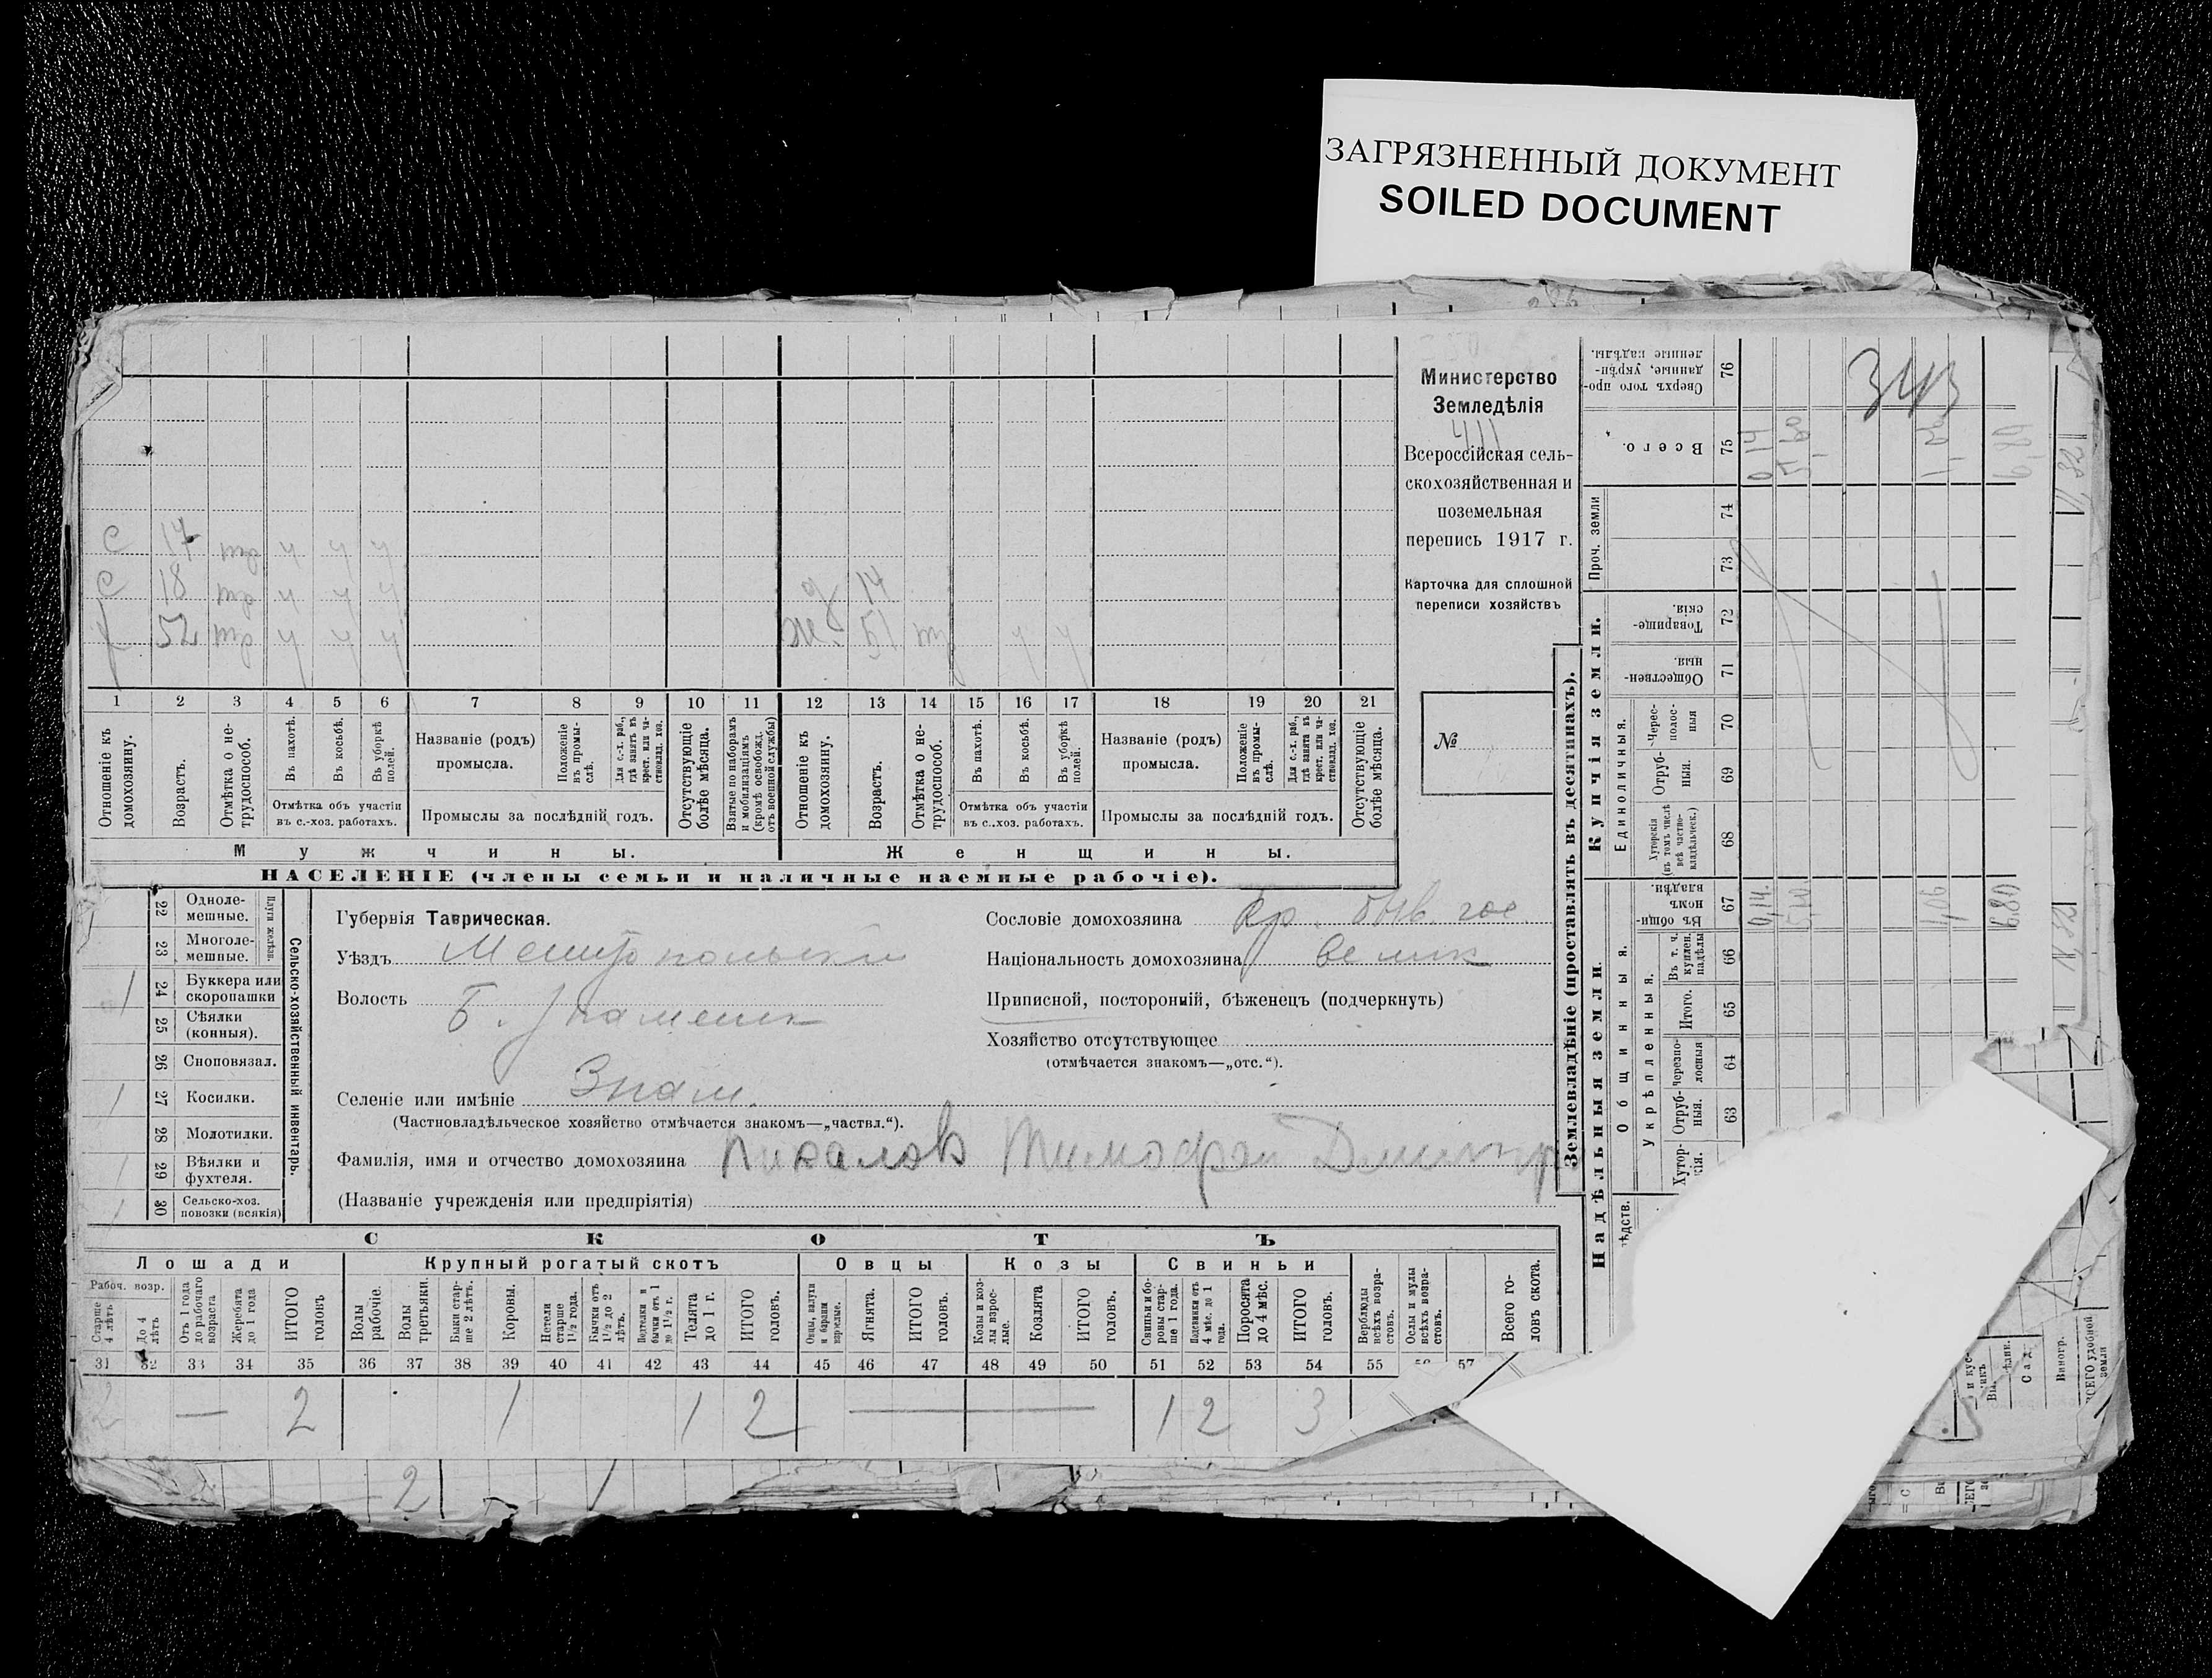 ЗАГРЯЗНЕННЫЙ ДОКУМЕНТ
SOILED DOCUMENT
Министерство
Земледѣлія
411
Всероссійская сель-
скохозяйственная и
поземельная
перепись 1917 г.
Карточка для сплошной
переписи хозяйствъ
№
343
С 17 у у у
С 18 у у у
52 у у у
14
ж. 51 у у
1 2 3 4 5 6 7 8 9 10 11 12 13 14 15 16 17 18 19 20 21
Отношеніе къ домохозяину.
Возрастъ.
Отмѣтка о не-трудоспособ.
Въ пахотѣ.
Въ косьбѣ.
Въ уборкѣ полей.
Отмѣтка объ участіи
въ с.-хоз. работахъ.
Названіе (родъ)
промысла.
Положеніе въ промы-слѣ.
Для с.-х. раб., гдѣ занятъ въ крест. или ча-стновлад. хоз.
Промыслы за послѣдній годъ.
Отсутствующіе болѣе мѣсяца.
Взятые по наборамъ и мобилизаціямъ (кромѣ освобожд. отъ военной службы)
Отношеніе къ домохозяину.
Возрастъ.
Отмѣтка о не-трудоспособ.
Въ пахотѣ.
Въ косьбѣ.
Въ уборкѣ полей.
Отмѣтка объ участіи
въ с.-хоз. работахъ.
Названіе (родъ)
промысла.
Положеніе въ промы-слѣ.
Для с.-х. раб., гдѣ занята въ крест. или ча-стновлад. хоз.
Промыслы за послѣдній годъ.
Отсутствующіе болѣе мѣсяца.
Мужчины.
Женщины.
НАСЕЛЕНІЕ (члены семьи и наличные наемные рабочіе).
22 Одноле-мешные.
23 Многоле-мешные.
Плуги желѣзн.
1 24 Буккера или скоропашки
25 Сѣялки (конныя).
26 Сноповязал.
1 27 Косилки.
28 Молотилки.
1 29 Вѣялки и фухтеля.
1 30 Сельско-хоз. повозки (всякія)
Сельско-хозяйственный инвентарь.
Губернія Таврическая.
Уѣздъ Мелитопольский
Волость Б. Знаменск
Селеніе или имѣніе Знам.
(Частновладѣльческое хозяйство отмѣчается знакомъ—„частвл.“).
Фамилія, имя и отчество домохозяина Пикалов Тимофей Дмитр
(Названіе учрежденія или предпріятія)
Сословіе домохозяина Кр. быв. гос.
Національность домохозяина велик
Приписной, посторонній, бѣженецъ (подчеркнуть)
Хозяйство отсутствующее
(отмѣчается знакомъ—„отс.“).
СКОТЪ
Лошади
Крупный рогатый скотъ
Овцы
Козы
Свиньи
Рабоч. возр.
Старше 4 лѣтъ
До 4 лѣтъ
Отъ 1 года до рабочаго возраста
Жеребята до 1 года
ИТОГО головъ
Волы рабочіе.
Волы третьяки.
Быки стар-ше 2 лѣтъ.
Коровы.
Нетели старше 1½ года.
Бычки отъ 1½ до 2 лѣтъ.
Подтелки и бычки отъ 1 до 1½ г.
Телята до 1 г.
ИТОГО головъ.
Овцы, валухи и бараны взрослые.
Ягнята.
ИТОГО головъ.
Козы и коз-лы взрос-лые.
Козлята
ИТОГО головъ.
Свиньи и бо-ровы стар-ше 1 года.
Подсвинки отъ 4 мѣс. до 1 года.
Поросята до 4 мѣс.
ИТОГО головъ.
Верблюды всѣхъ возра-стовъ.
Ослы и мулы всѣхъ возра-стовъ.
Всего го-ловъ скота.
31 32 33 34 35 36 37 38 39 40 41 42 43 44 45 46 47 48 49 50 51 52 53 54 55 57
2 — 2 1 1 2 — 1 2 3
2 1
Землевладѣніе (проставлять въ десятинахъ).
Надѣльныя земли.
Купчія земли.
Проч. земли
Общинныя.
Укрѣпленныя.
Единоличныя.
Отруб-ныя. 63
Черезпо-лосныя 64
Итого. 65
Въ т. ч. куплен. надѣлы 66
Въ общин-номъ владѣн. 67
Хуторскія (въ томъ числѣ всѣ частно-владѣльческ.) 68
Отруб-ныя. 69
Черес-полос-ныя 70
Обществен-ныя. 71
Товарище-скія. 72
73
74
Всего. 75
Сверхъ того про-данные, укрѣп-ленные надѣлы. 76
0,14
6,80
Виногр.